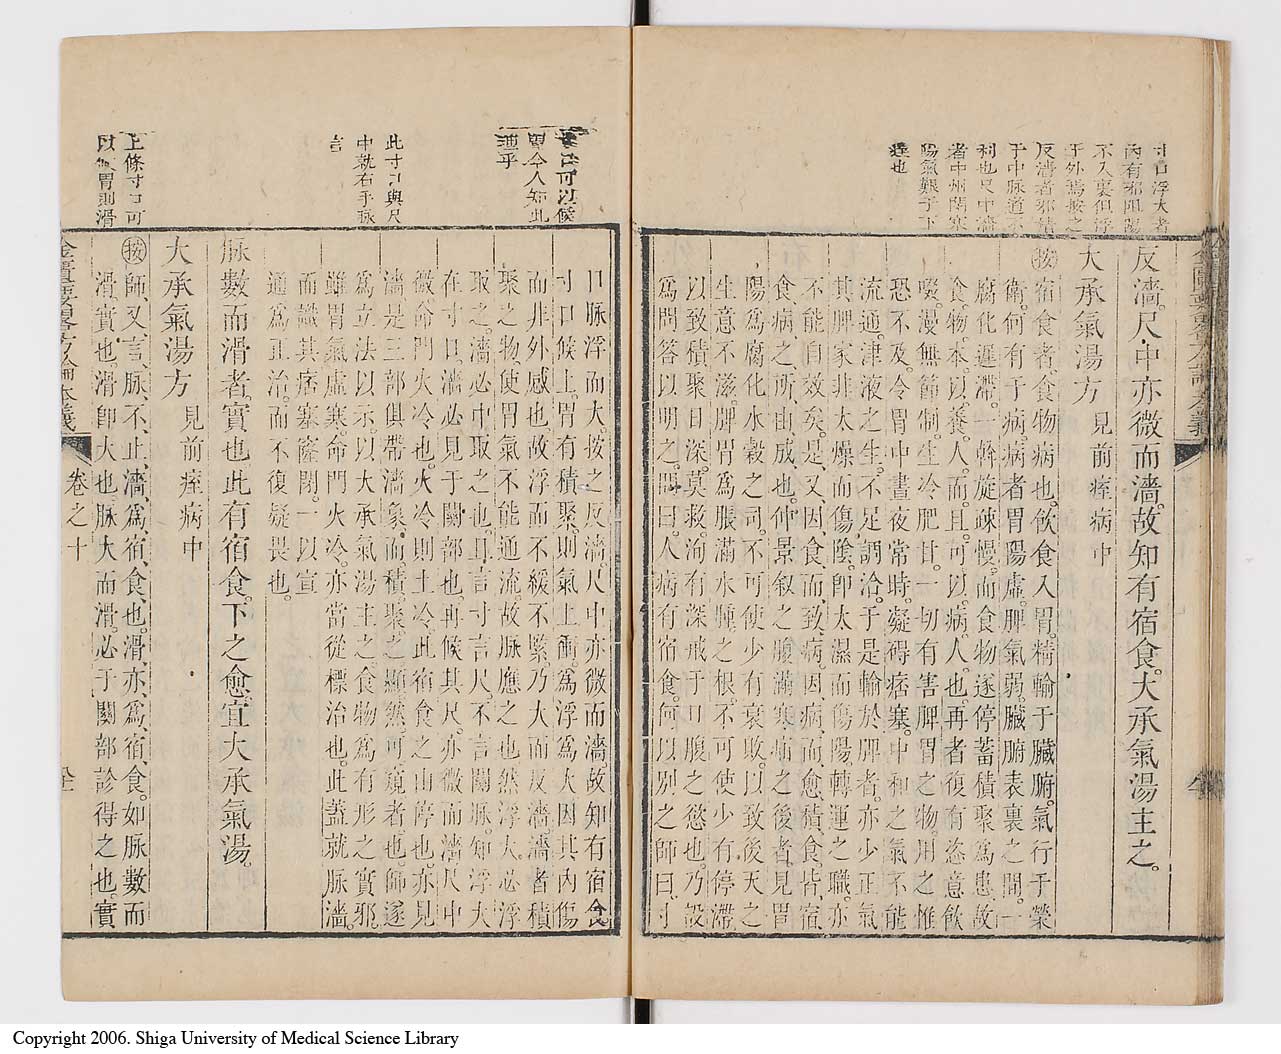 寸口浮大者
內有邪阻陽
不入裏但浮
于外焉按之
反濇者邪積
于中脉道不
利也尺中濇
者中州閉塞
陽氣艱于下
達也
反濇尺中亦微而濇故知有宿食大承氣湯主之
大承氣湯方 見前痓病中
按宿食者食物病也飲食入胃精輸于臟腑氣行于榮
衛何有于病病者胃陽虛脾氣弱臟腑表裏之間一
腐化遲滯一斡旋疎慢而食物遂停蓄積聚爲患故
食物本以養人而且可以病人也再者復有恣意飲
啖漫無節制生冷肥甘一切有害脾胃之物用之惟
恐不及令胃中晝夜常時凝碍痞塞中和之氣不能
流通津液之生不足調洽于是輸於脾者亦少正氣
其脾家非太燥而傷陰卽太濕而傷陽轉運之職亦
不能自效矣是又因食而致病因病而愈積食皆宿
食病之所由成也仲景叙之腹滿寒疝之後者見胃
陽爲腐化水糓之司不可使少有衰敗以致後天之
生意不滋脾胃爲脹滿水腫之根不可使少有停滯
以致積聚日深莫救洵有深戒于口腹之慾也乃設
爲問答以明之問曰人病有宿食何以別之師曰寸
口可以候
胃今人知此
理乎
此寸口與尺
中就右手脉
言
上條寸口可
以候胃則滑
口脉浮而大按之反濇尺中亦微而濇故知有宿食
寸口候上胃有積聚則氣上衝爲浮爲大因其內傷
而非外感也故浮而不緩不緊乃大而反濇濇者積
聚之物使胃氣不能通流故脉應之也然浮大必浮
取之濇必中取之也且言寸言尺不言關脉知浮大
在寸口濇必見于關部也再候其尺亦微而濇尺中
微命門火冷也火冷則土冷此宿食之由停也亦見
濇是三部俱帶濇象而積聚之顯然可窺者也師遂
爲立法以示以大承氣湯主之食物爲有形之實邪
雖胃氣虛寒命門火冷亦當從標治也此蓋就脉濇
而識其痞塞窿閉一以宣
通爲正治而不復疑畏也
脉數而滑者實也此有宿食下之愈宜大承氣湯
大承氣湯方 見前痓病中
按師又言脉不止濇爲宿食也滑亦爲宿食如脉數而
滑實也滑卽大也脉大而滑必于關部診得之也實
金匱要畧方論本義 卷之十
Copyright 2006. Shiga University of Medical Science Library